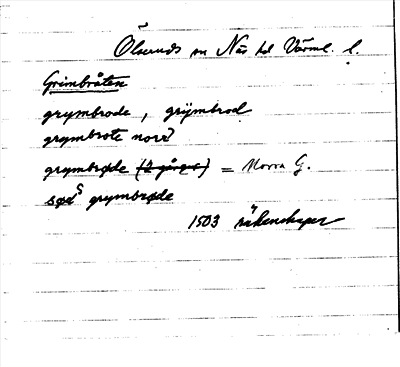 Ölseruds sn Näs hd Värml. l.
Grimbråten
grymbrode, grijmbrod
grymbrote norr
grymbrøde (2 gånger) = Norra G.
sød<sup>s</sup> grymbrøde
1503 räkenskaper